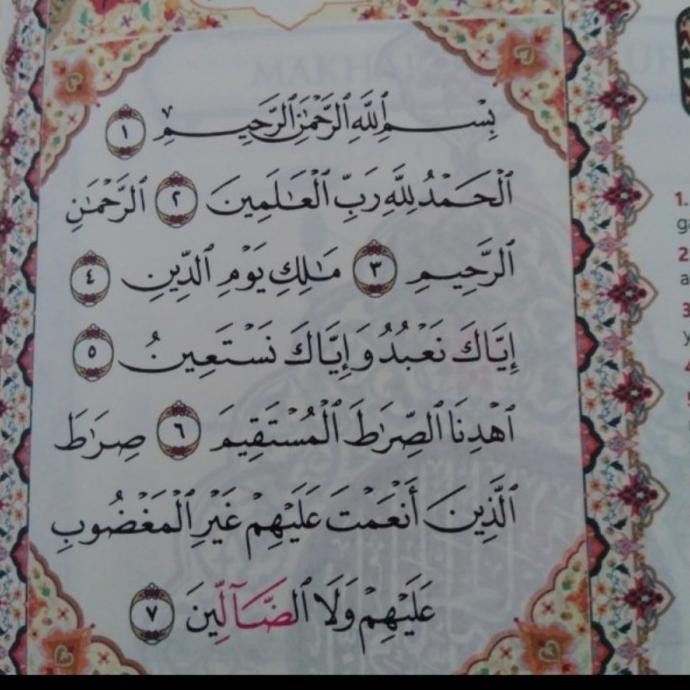 بِسْمِ ٱللَّهِ ٱلرَّحْمَٰنِ ٱلرَّحِيمِ ١
ٱلْحَمْدُ لِلَّهِ رَبِّ ٱلْعَٰلَمِينَ ٢ ٱلرَّحْمَٰنِ
ٱلرَّحِيمِ ٣ مَٰلِكِ يَوْمِ ٱلدِّينِ ٤
إِيَّاكَ نَعْبُدُ وَإِيَّاكَ نَسْتَعِينُ ٥
ٱهْدِنَا ٱلصِّرَٰطَ ٱلْمُسْتَقِيمَ ٦ صِرَٰطَ
ٱلَّذِينَ أَنْعَمْتَ عَلَيْهِمْ غَيْرِ ٱلْمَغْضُوبِ
عَلَيْهِمْ وَلَا ٱلضَّآلِّينَ ٧
1.
2
3